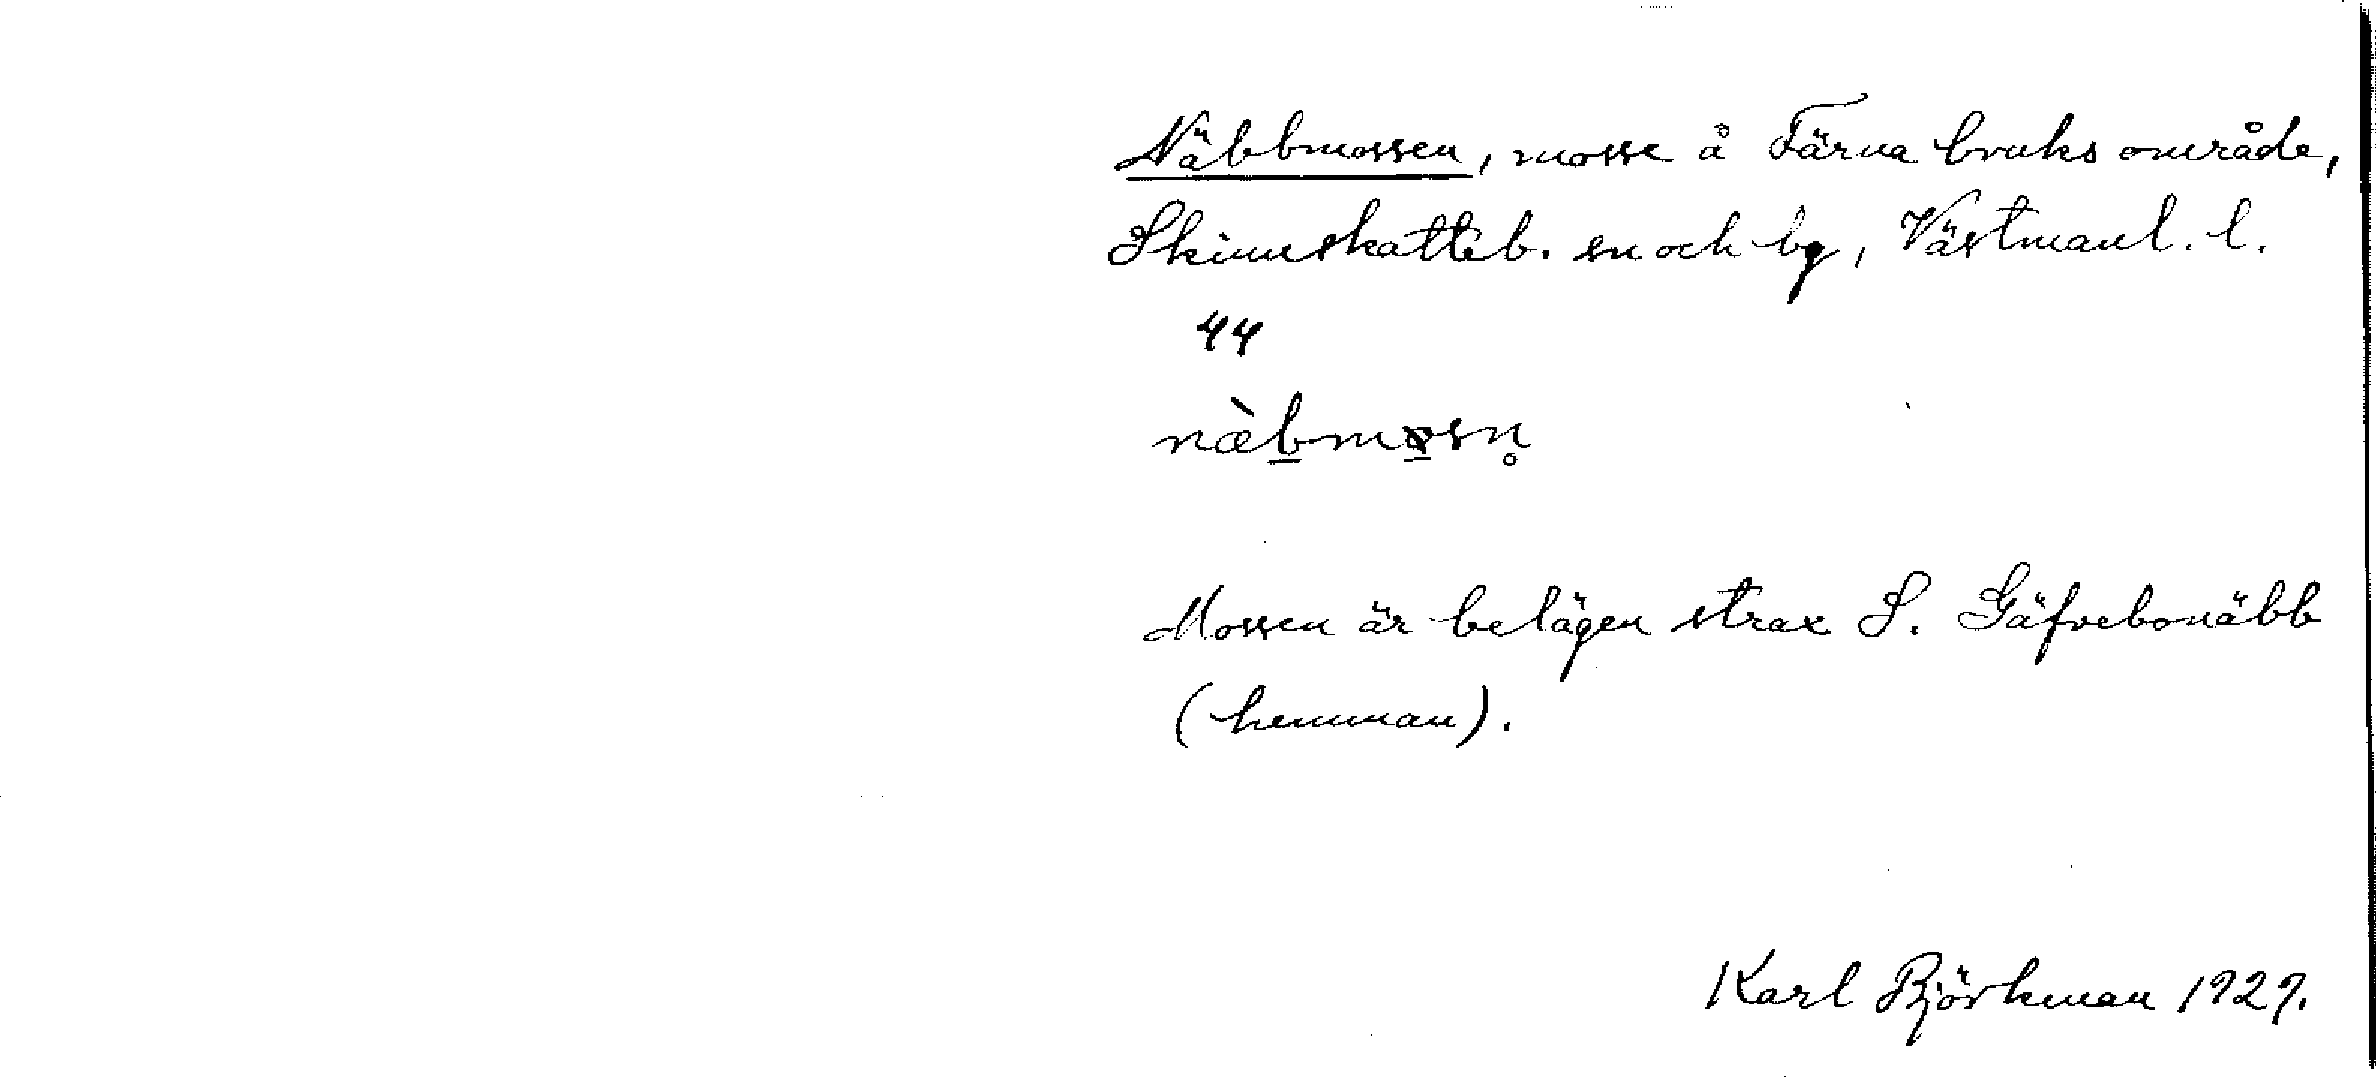 Näbbmossen, mosse å Färna bruks område,
Skinnskatteb. sn och bg, Västmanl. l.
44
næ̀b̲mo̲sn̥
Mossen är belägen strax S. Gäfvebonäbb
(hemman).
Karl Björkman 1929.